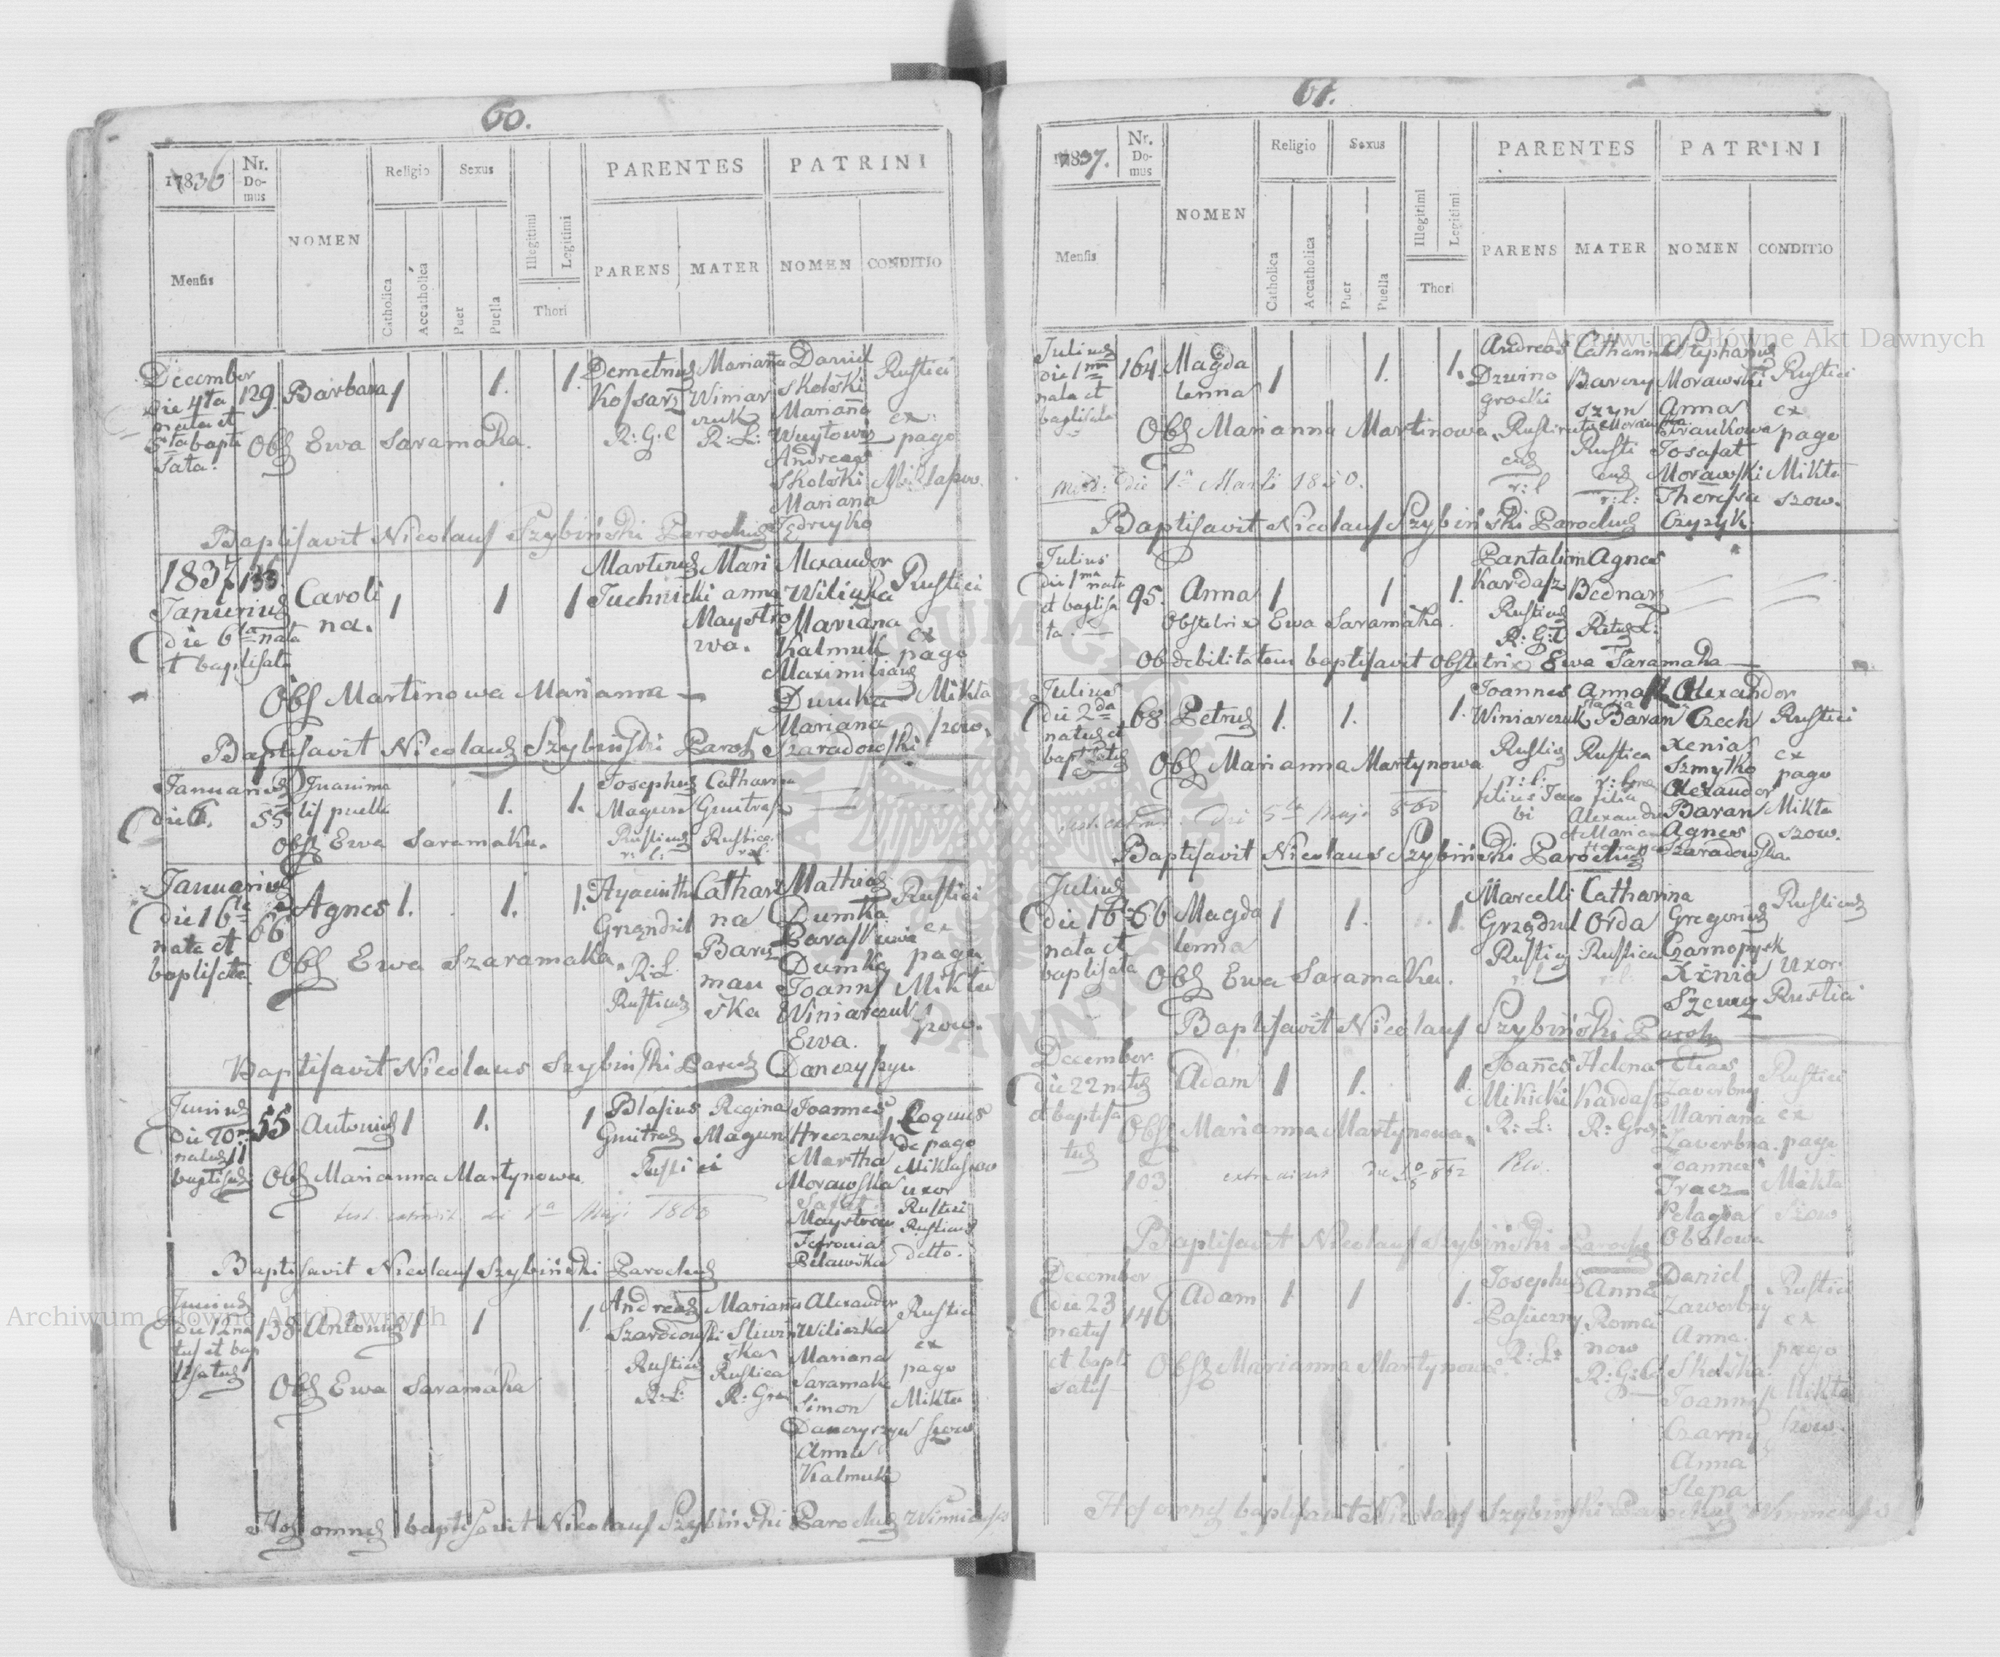 60.
1836
Nr. Domus
NOMEN
Religio
Sexus
PARENTES
PATRINI
Mensis
Catholica
Accatholica
Puer
Puella
Illegitimi
Legitimi
Thori
PARENS
MATER
NOMEN
CONDITIO
December die 4ta nata et 5ta baptisata.
129.
Barbara
1
1.
1.
Demetrius Kossarz R: G: C
Marianna Winiarczuk R: L:
Daniel Skolski
Mariana Wuytowicz
Andreas Skolski
Mariana Jedreyko
Rustici ex pago Miklaszow.
Obs Ewa Saramaka.
Baptisavit Nicolaus Szybiński Parochus
1837
Januarius die 6ta nata et baptisata
133
Carolina.
1
1
1
Martinus Tuchnicki
Marianna Maystrowa.
Alexander Wiliczka
Mariana Kalmuk
Maximilianus Dumka
Mariana Szaradowski
Rustici ex pago Miklaszow.
Obs Martinowa Marianna
Baptisavit Nicolaus Szybiński Paroh
Januarius die 6.
55
Inanimatis puella
1.
1.
Josephus Magun Rusticus r: l:
Catharina Gmitras Rustica r: l:
Obst Ewa Saramaka.
Januarius die 16ta nata et baptisata
66
Agnes
1.
1.
1.
Hyacinthus Grządziel R: L. Rusticus
Catharina Barszmańska
Mathias Dumka
Parascewia Dumka
Joannes Winiarczuk
Ewa Danczyszyn
Rustici ex pago Miklaszow.
Obs Ewa Szaramaka.
Baptisavit Nicolaus Szybiński Paroch
Junius die 10ma natus 11 baptisatus
55
Antonius
1
1.
1
Blasius Gmitras
Regina Magun
Rustici
Joannes Hreczeruk
Martha Morawska
Maystrow
Fefronia Belawska
Coquus de pago Miklaszow
uxor Rustici
Rusticus
detto.
Obs Marianna Martynowa.
test. extradit. die 1a Maji 1860
Baptisavit Nicolaus Szybiński Parochus
Junius die 12 natus et baptisatus
138.
Antonius
1
1
1.
Andreas Szaradowski Rusticus R: L:
Marianna Sliwińska Rustica R: Grae
Alexander Wiliczka
Mariana Saramaka
Simon Danczyszyn
Anna Kalmuk
Rustici ex pago Miklaszow
Obs Ewa Saramaka
Hos omnes baptisavit Nicolaus Szybiński Parochus Winnicensis
61.
1837.
Nr. Domus
NOMEN
Religio
Sexus
PARENTES
PATRINI
Mensis
Catholica
Accatholica
Puer
Puella
Illegitimi
Legitimi
Thori
PARENS
MATER
NOMEN
CONDITIO
Julius die 1ma nata et baptisata
164.
Magdalenna
1
1.
1.
Andreas Dzwinogrocki Rusticus r: l
Catharina Barczyszyn
r: l:
Stephanus Morawski
Anna
Josafat Morawski
Theresia Czyzyk.
Rustici ex pago Miklaszow.
Obs Marianna Martinowa.
die 1a Marti 1850.
Baptisavit Nicolaus Szybiński Parochus
Julius die 1ma nata et baptisata
95.
Anna
1
1
1.
Pantalimon Kardasz Rusticus R: G: C
Agnes Bednarz Ritus L:
Obstetrix Ewa Saramaka.
Ob debilitatem baptisavit Obstetrix Ewa Saramaka
Julius die 2da natus et baptisatus
68.
Petrus
1.
1.
1.
Joannes Winiarczuk Rusticus r: l: filius Jacobi
Anna Baran Rustica filia Alexandri et Maria
Alexander Czech
Xenia Szmytko
Alexander Baran
Agnes Szaradowska
Rustici ex pago Miklaszow.
Obs Marianna Martynowa
die 5ta Maji 860
Baptisavit Nicolaus Szybiński Parochus
Julius die 16. nata et baptisata
66
Magdalenna
1
1.
1.
Marcelli Grządziel Rusticus r: l
Catharina Orda Rustica r: l
Gregorius Czarnopysk
Xenia
Rusticus
uxor Rustici
Obs Ewa Saramaka.
Baptisavit Nicolaus Szybiński Paroh
December die 22 natus et baptisatus
103
Adam
1
1.
1.
Joannes Mikicki R: L:
Helena Kardasz R: Graec:
Elias Zawerbny
Mariana Zawerbna
Joannes Tracz
Pelagia Obalowa
Rustici ex pago Miklaszow
Obs Marianna Martynowa.
Baptisavit Nicolaus Szybiński Parochus
December die 23 natus et baptisatus
146
Adam
1
1
1.
Josephus Pasieczny R: L:
Anna Romanow R: G: C
Daniel Zawerbny
Anna Skolska
Joannes Czarny
Anna Slepa
Rustici ex pago Miklaszow.
Obst Marianna Martynowa.
Hos omnes baptisavit Nicolaus Szybiński Parochus Winnicensis
Archiwum Główne Akt Dawnych
Archiwum Główne Akt Dawnych
ARCHIWUM GŁÓWNE AKT DAWNYCH